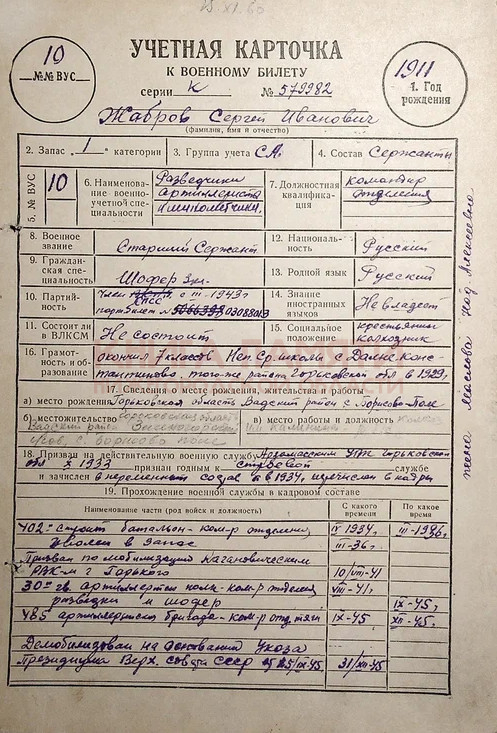 15.XI.60
10
№№ ВУС
УЧЕТНАЯ КАРТОЧКА
К ВОЕННОМУ БИЛЕТУ
серии К № 579982
1911
1. Год
рождения
Жабров Сергей Иванович
(фамилия, имя и отчество)
2. Запас 1 категории
3. Группа учета СА
4. Состав Сержанты
5. № ВУС
10
6. Наименование военно-учетной специальности
Разведчики артиллеристы и минометчики.
7. Должностная квалификация
командир отделения
8. Военное звание
Старший Сержант
12. Национальность
Русский
9. Гражданская специальность
Шофер
13. Родной язык
Русский
10. Партийность
Член КПСС с III-1943г
партбилет № 03088013
14. Знание иностранных языков
Не владеет
11. Состоит ли в ВЛКСМ
Не состоит
15. Социальное положение
крестьянин колхозник
16. Грамотность и образование
окончил 7 классов Неп. Ср. школы с Дальне-Константиново, того-же района Горьковской обл в 1929г.
17. Сведения о месте рождения, жительства и работы
а) место рождения Горьковская область Вадский район с Борисово-Поле
б) местожительство Горьковская область
Вадский район
с. Борисово поле
в) место работы и должность колхоз
им Калинина
18. Призван на действительную военную службу Арзамасским Горьковской
обл X 1933 признан годным к строевой службе
и зачислен в переменный состав в 1934, перечислен в кадры
19. Прохождение военной службы в кадровом составе
Наименование части (род войск и должность)
С какого времени
По какое время
402 строит батальон-ком-р отделения, IV 1934г III-1936г.
Уволен в запас III-36г.
Призван по мобилизации Кагановическим
РВК-м г Горького 10/VIII-41
30 гв. артиллерийский полк-ком-р отделения VIII-41г.
разведки и шофер IX-45г.
485 артиллерийская бригада-ком-р отд. тяги IX-45 XII-45г.
Демобилизован на основании Указа
Президиума Верх. совета СССР 25/IX-45 31/XII-45
жена Маслова Над. Алексеевна